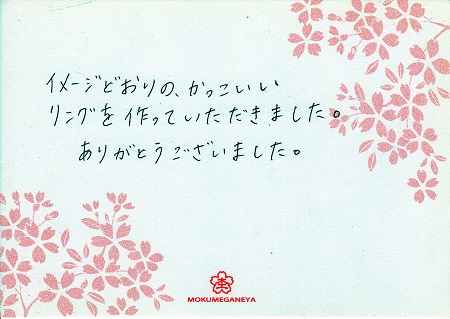 イメージどおりの、かっこいい
リングを作っていただきました。
ありがとうございました。
MOKUMEGANEYA